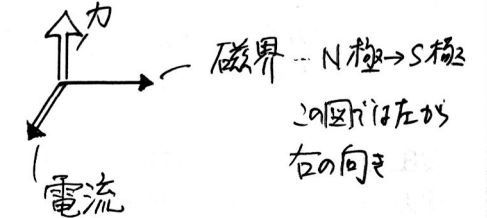 力
磁界…N極→S極
この図では左から
右の向き
電流